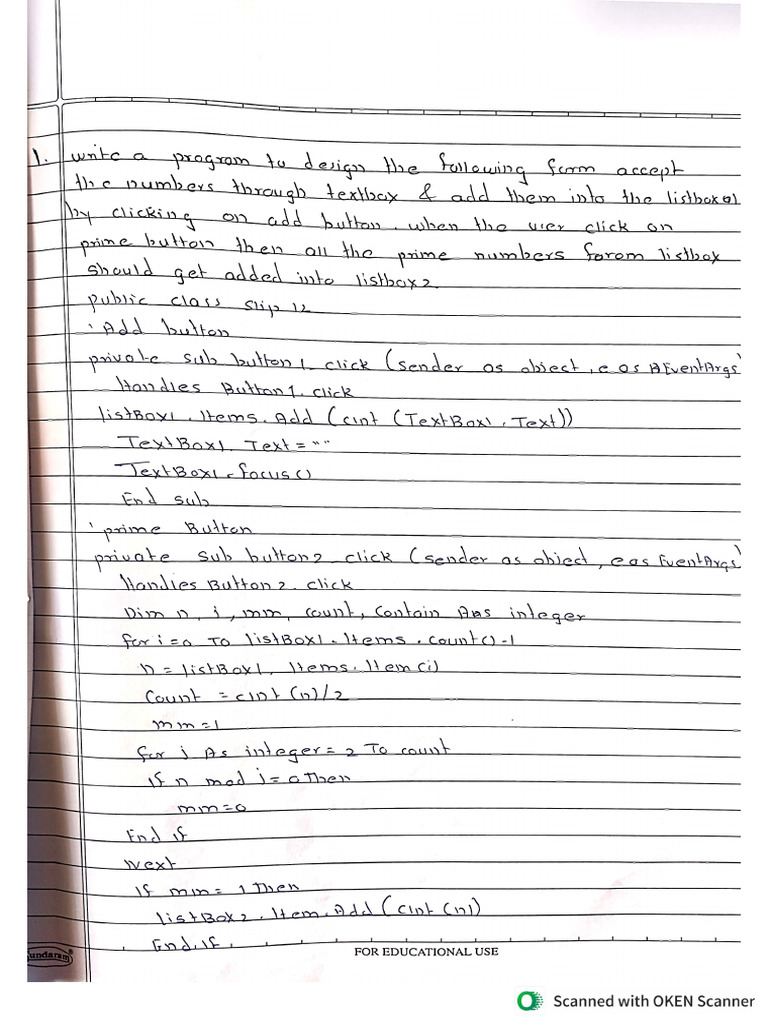 1. write a program to design the following form accept
the numbers through textbox & add them into the listbox(1)
by clicking on add button. when the user click on
prime button then all the prime numbers forom listbox
should get added into listbox2.
public class slip 12
' Add button
private sub button1. click (sender as object, e as AEventArgs)
Handles Button1. click
listBox1. Items. Add (cint (TextBox1. Text))
TextBox1. Text = ""
TextBox1. focus()
End sub
' prime Button
private sub button2. click (sender as object, e as EventArgs)
Handles Button2. click
Dim n, i, mm, count, contain As integer
for i=0 To listBox1. Items. count()-1
n = listBox1. Items. Item(i)
Count = cint (n)/2
mm=1
for j As integer = 2 To count
If n mod j=0 Then
mm=0
End if
Next
if mm= 1 then
listBox2. Item. Add (cint (n))
End. If.
undaram®
FOR EDUCATIONAL USE
Scanned with OKEN Scanner